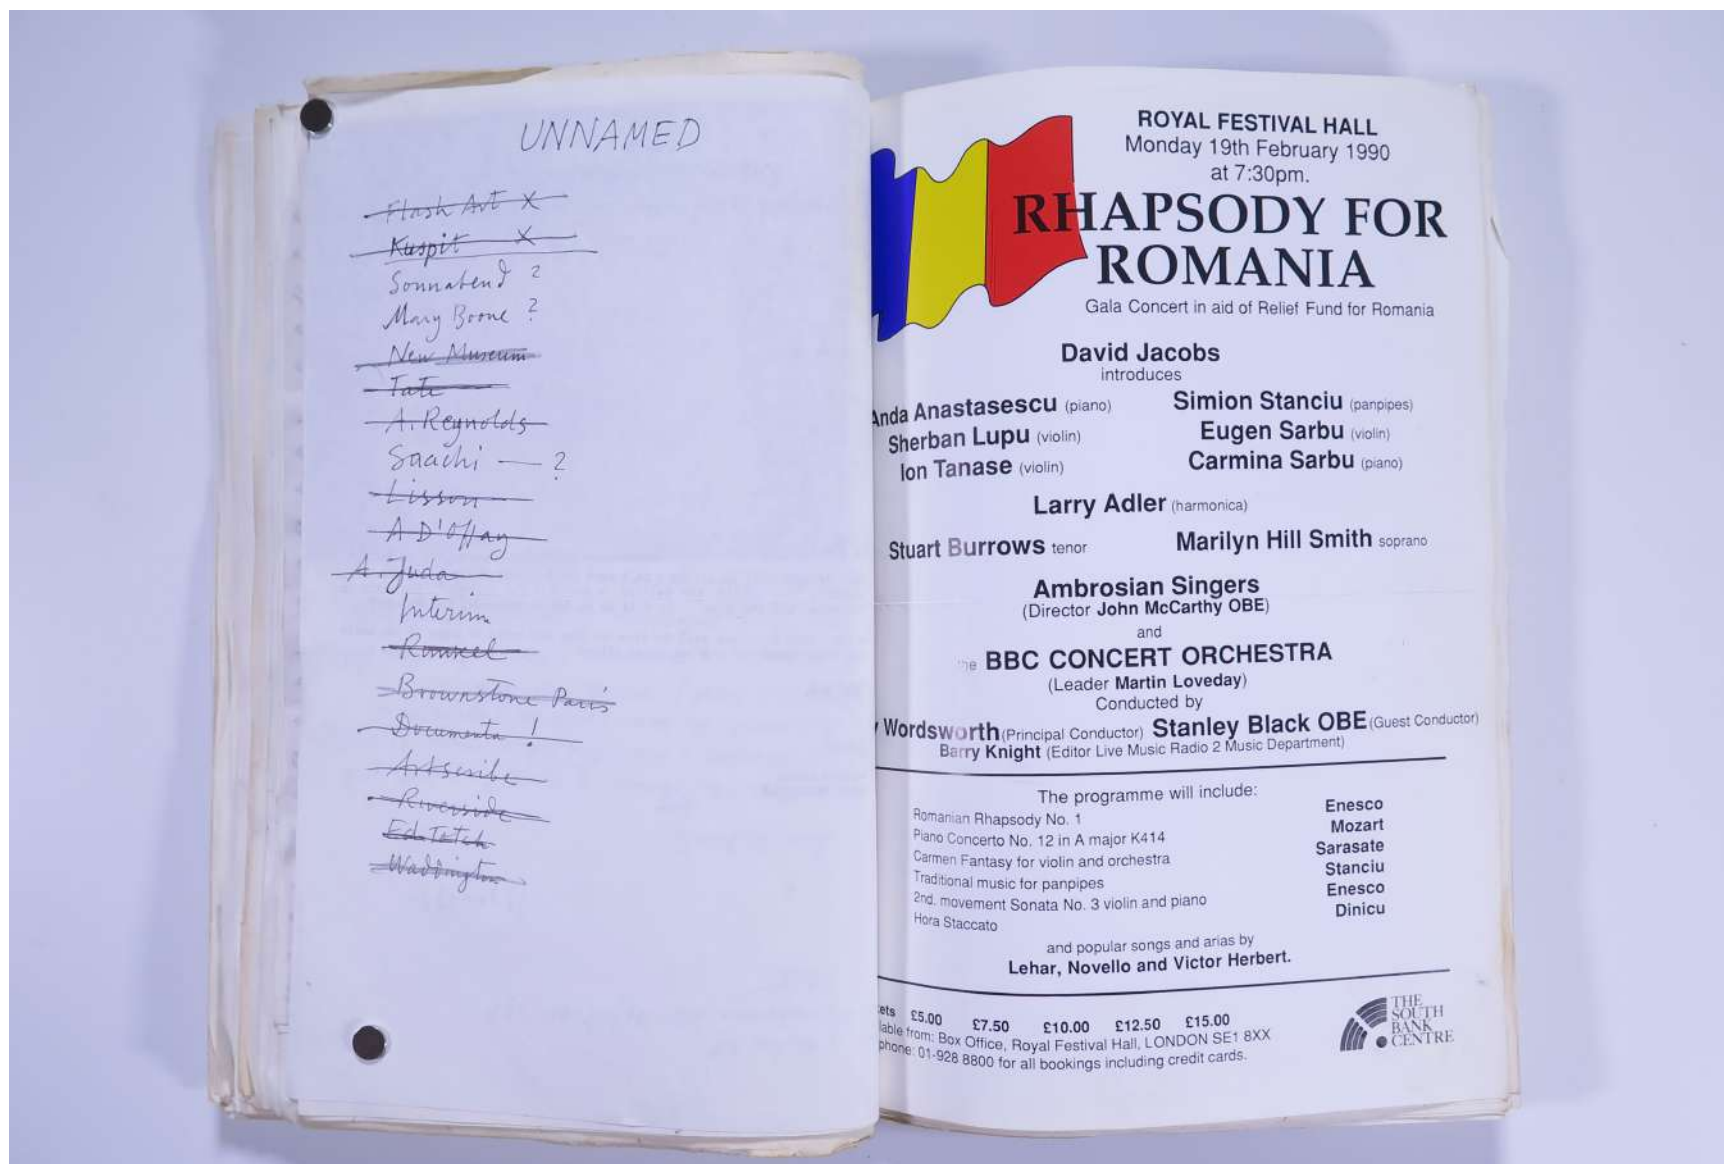 UNNAMED
Flash Art X
Kuspit X
Sonnabend ?
Mary Boone ?
New Museum
Tate
A. Reynolds
Saachi — ?
Lisson
A D'Offay
A. Juda
Interim
Brownstone Paris
Documenta !
Artscribe
Riverside
Ed Totah
Waddington
ROYAL FESTIVAL HALL
Monday 19th February 1990
at 7:30pm.
RHAPSODY FOR
ROMANIA
Gala Concert in aid of Relief Fund for Romania
David Jacobs
introduces
Anda Anastasescu (piano) Simion Stanciu (panpipes)
Sherban Lupu (violin) Eugen Sarbu (violin)
Ion Tanase (violin) Carmina Sarbu (piano)
Larry Adler (harmonica)
Stuart Burrows tenor Marilyn Hill Smith soprano
Ambrosian Singers
(Director John McCarthy OBE)
and
he BBC CONCERT ORCHESTRA
(Leader Martin Loveday)
Conducted by
y Wordsworth (Principal Conductor) Stanley Black OBE (Guest Conductor)
Barry Knight (Editor Live Music Radio 2 Music Department)
The programme will include:
Romanian Rhapsody No. 1 Enesco
Piano Concerto No. 12 in A major K414 Mozart
Carmen Fantasy for violin and orchestra Sarasate
Traditional music for panpipes Stanciu
2nd. movement Sonata No. 3 violin and piano Enesco
Hora Staccato Dinicu
and popular songs and arias by
Lehar, Novello and Victor Herbert.
ets £5.00 £7.50 £10.00 £12.50 £15.00
lable from: Box Office, Royal Festival Hall, LONDON SE1 8XX
phone: 01-928 8800 for all bookings including credit cards.
THE
SOUTH
BANK
CENTRE